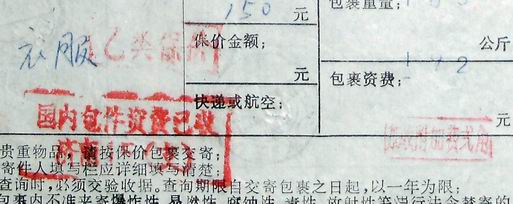 150 元
包裹重量:
衣服
乙类保
保价金额:
元
公斤
包裹资费:
快递或航空:
元
国内包件资费已收
贵重物品,请按保价包裹交寄;
寄件人填写栏应详细填写清楚;
查询时,必须交验收据。查询期限自交寄包裹之日起,以一年为限;
包裹内不准夹寄爆炸性、易燃性、腐蚀性、毒性、放射性等